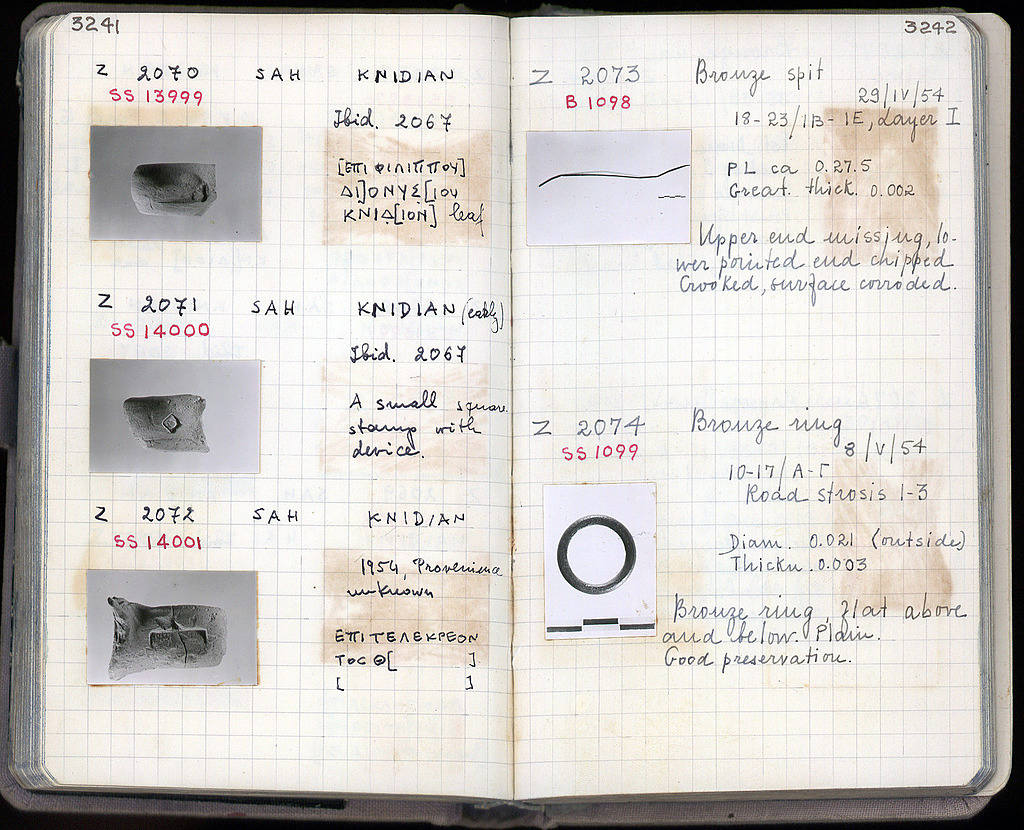 3241
Z 2070 SAH KNIDIAN
SS 13999
Ibid. 2067
[ΕΠΙ ΦΙΛΙΠΠΟΥ]
ΔΙ]ΟΝΥΣ[ΙΟΥ
ΚΝΙΔ[ΙΟΝ] leaf
Z 2071 SAH KNIDIAN (early)
SS 14000
Ibid. 2067
A small square
stamp with
device.
Z 2072 SAH KNIDIAN
SS 14001
1954, Provenience
unknown
ΕΠΙΤΕΛΕΚΡΕΟΝ
ΤΟC Θ[ ]
[ ]
3242
Z 2073 Bronze spit
B 1098
29/IV/54
18-23/IB-IE, Layer I
PL ca 0.27.5
Great. thick. 0.002
Upper end missing, lo-
wer pointed end chipped
Crooked, surface corroded.
Z 2074 Bronze ring
SS 1099
8/V/54
10-17/A-Γ
Road strosis 1-3
Diam. 0.021 (outside)
Thickn. 0.003
Bronze ring, flat above
and below. Plain.
Good preservation.